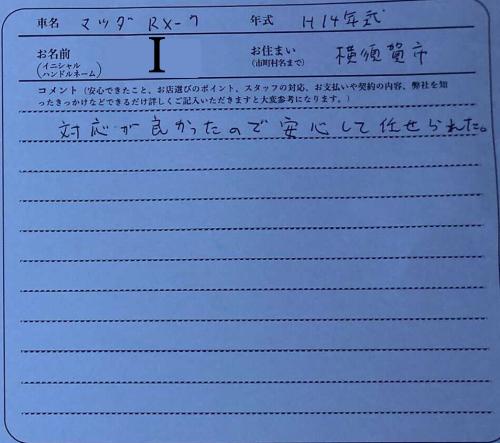 車名 マツダ RX-7 年式 H14年式
お名前 (イニシャル ハンドルネーム) I お住まい (市町村名まで) 横須賀市
コメント(安心できたこと、お店選びのポイント、スタッフの対応、お支払いや契約の内容、弊社を知
ったきっかけなどできるだけ詳しくご記入いただきますと大変参考になります。)
対応が良かったので安心して任せられた。